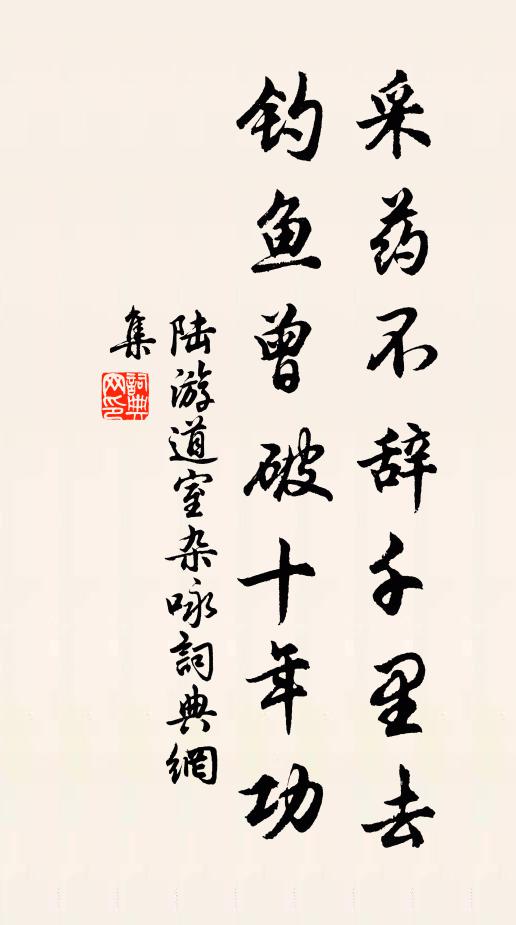 采药不辞千里去
钓鱼曾破十年功
陆游道室杂咏詞典網
集
詞典
网印